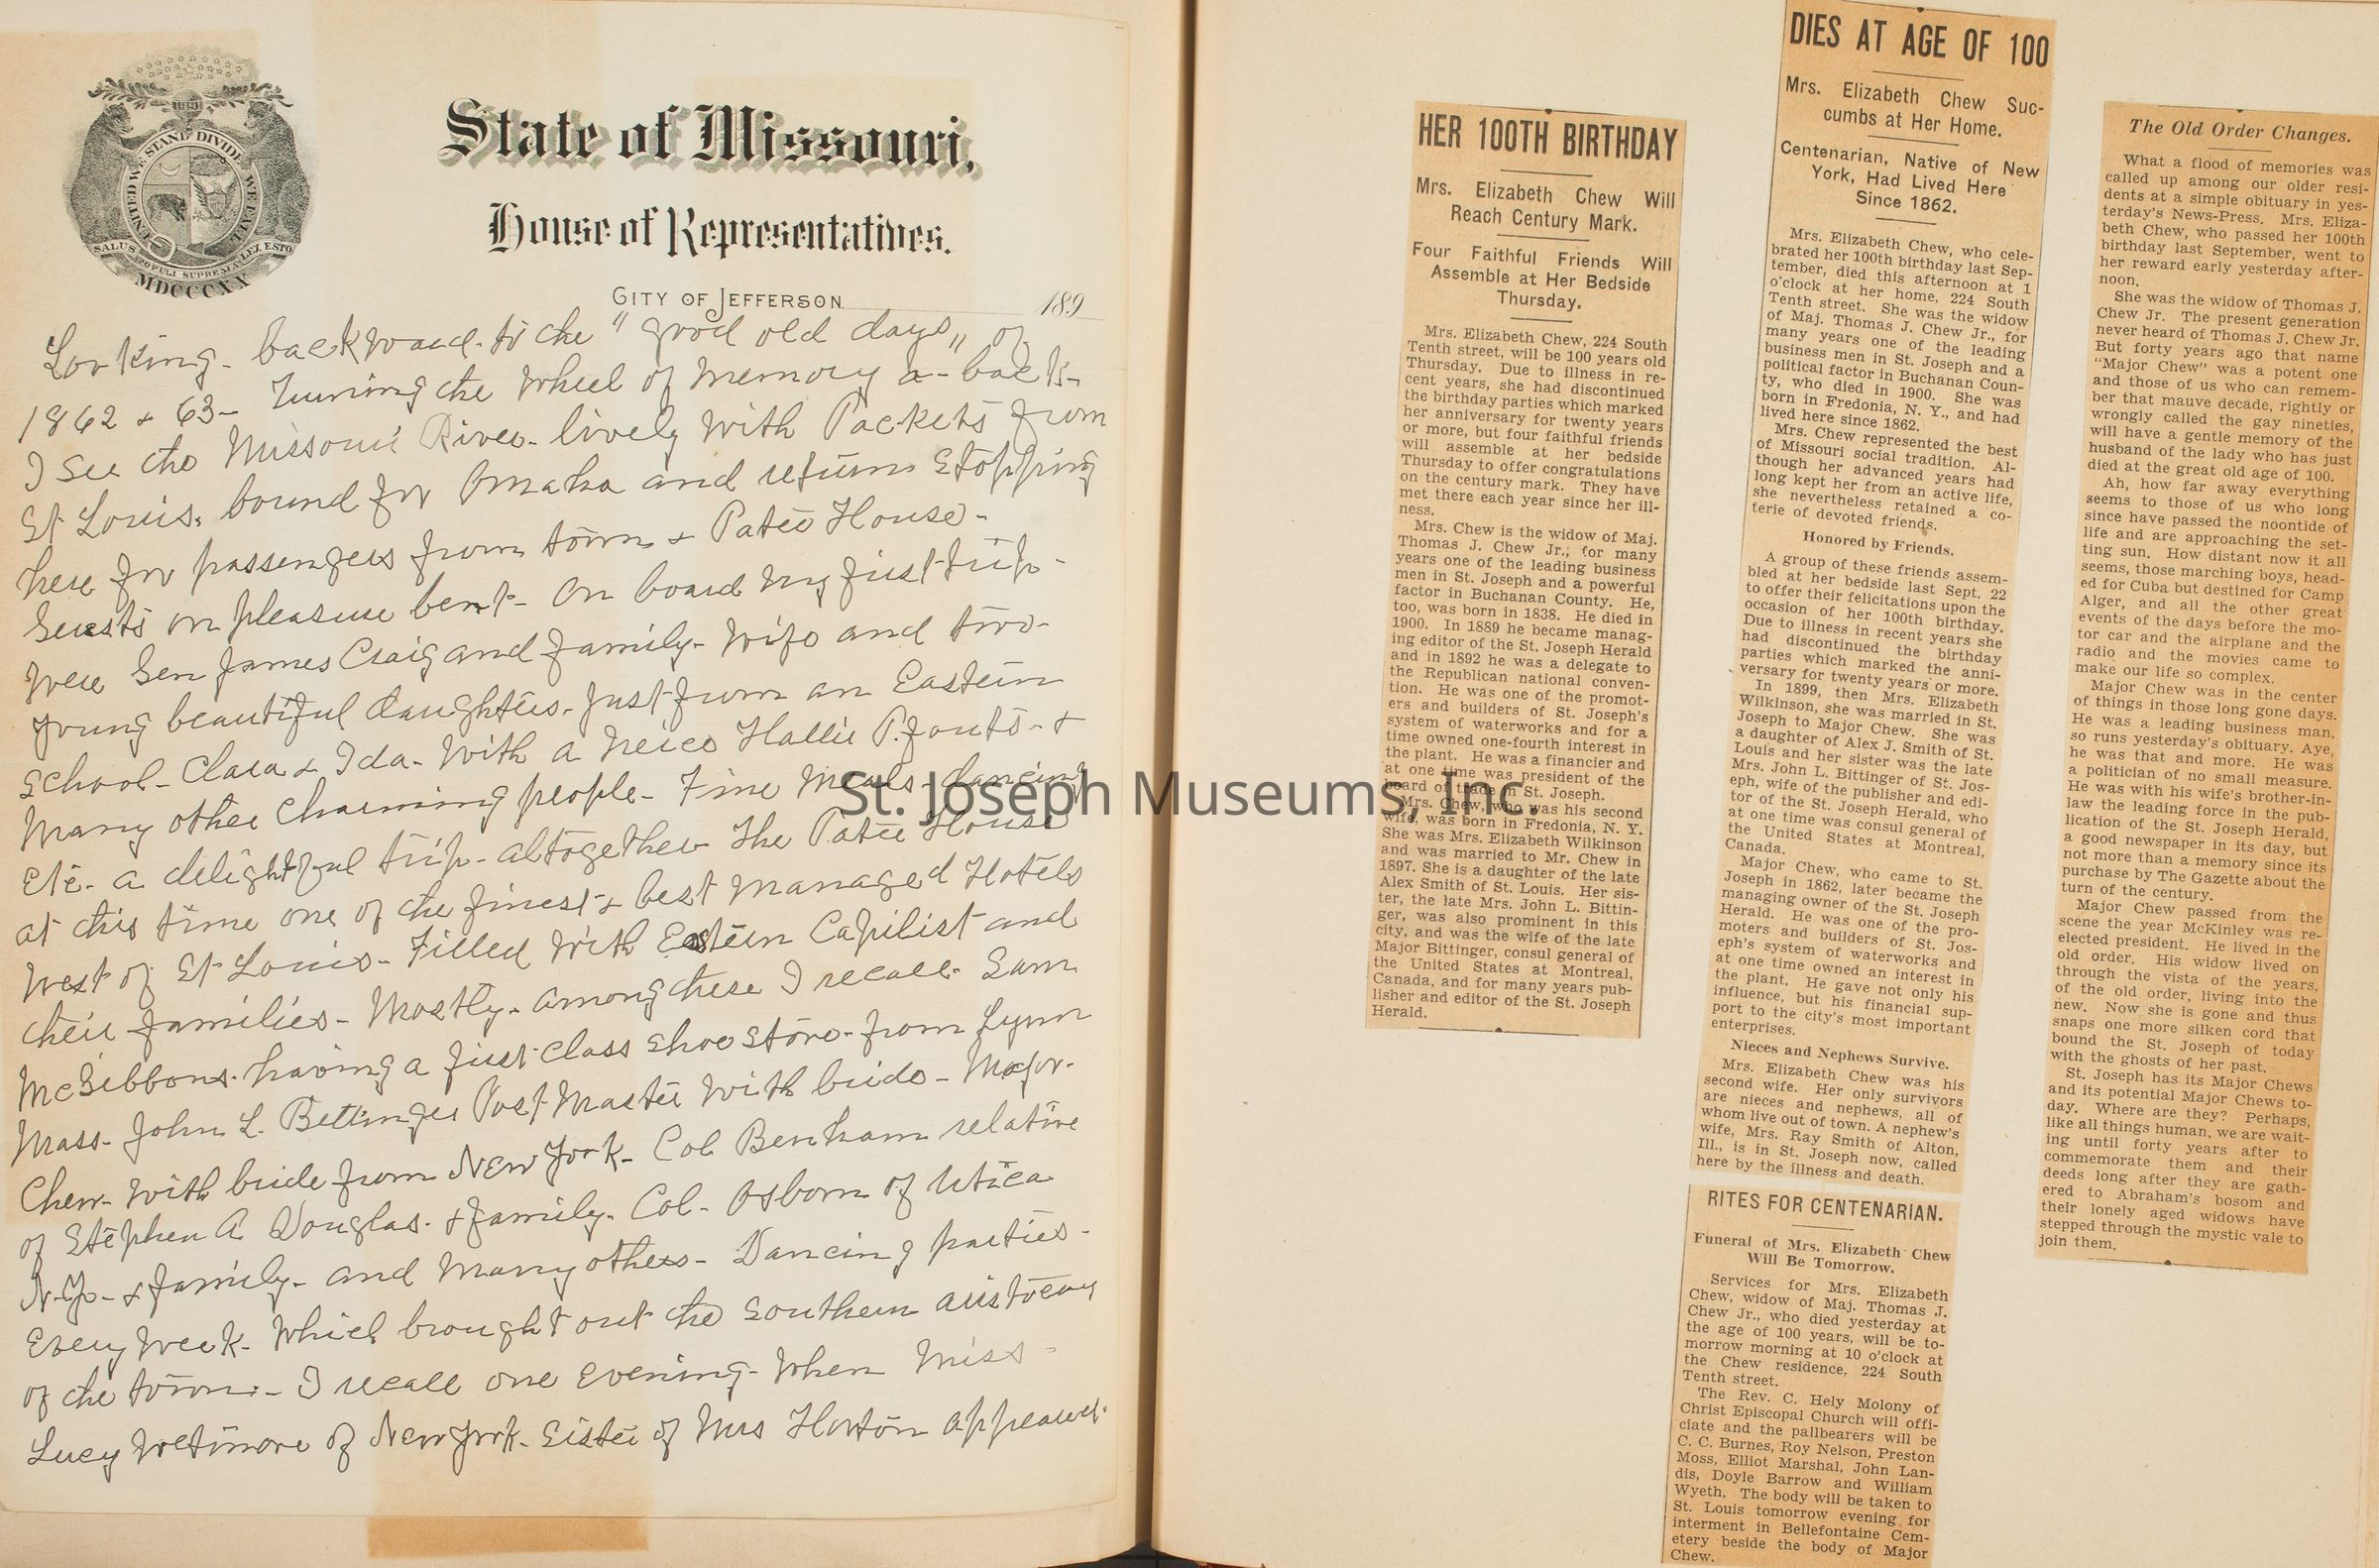 UNITED WE STAND DIVIDED WE FALL
SALUS POPULI SUPREMA LEX ESTO
MDCCCXX
State of Missouri,
House of Representatives.
CITY OF JEFFERSON 189
Looking - backward - to the "good old days" of
1862 & 63 - Turning the wheel of memory a - back -
I see the Missouri River - lively with Packets from
St Louis. bound for Omaha and return stopping
here for passengers from town & Patee House -
Guests on pleasure bent - On board my first trip -
were Gen James Craig and family - wife and two -
young beautiful daughters - just from an Eastern
School - Clara & Ida - With a neice Hallie P. Fouts - &
many other charming people - Fine meals - dancing
etc - a delightful trip - altogether The Patee House
at this time one of the finest & best managed Hotels
West of St Louis - Filled with Eastern Capilist and
their families - Mostly - among these I recall - Sam
McGibbons - having a first class shoe store - from Lynn
Mass - John L. Bettinger Post Master with bride - Major -
Chew - with bride from New York - Col Benham relative
of Stephen A Douglas - & family - Col - Osborn of Utica
N.Y. - & family - and many others - Dancing parties -
Every week - Which brought out the Southern aristocray
of the town - I recall one evening - when Miss -
Lucy Wetmore of New York - Sister of Mrs Horton appeared -
St. Joseph Museums, Inc.
HER 100TH BIRTHDAY
Mrs. Elizabeth Chew Will
Reach Century Mark.
Four Faithful Friends Will
Assemble at Her Bedside
Thursday.
Mrs. Elizabeth Chew, 224 South
Tenth street, will be 100 years old
Thursday. Due to illness in re-
cent years, she had discontinued
the birthday parties which marked
her anniversary for twenty years
or more, but four faithful friends
will assemble at her bedside
Thursday to offer congratulations
on the century mark. They have
met there each year since her ill-
ness.
Mrs. Chew is the widow of Maj.
Thomas J. Chew Jr., for many
years one of the leading business
men in St. Joseph and a powerful
factor in Buchanan County. He,
too, was born in 1838. He died in
1900. In 1889 he became manag-
ing editor of the St. Joseph Herald
and in 1892 he was a delegate to
the Republican national conven-
tion. He was one of the promot-
ers and builders of St. Joseph's
system of waterworks and for a
time owned one-fourth interest in
the plant. He was a financier and
at one time was president of the
board of trade in St. Joseph.
Mrs. Chew, who was his second
wife, was born in Fredonia, N. Y.
She was Mrs. Elizabeth Wilkinson
and was married to Mr. Chew in
1897. She is a daughter of the late
Alex Smith of St. Louis. Her sis-
ter, the late Mrs. John L. Bittin-
ger, was also prominent in this
city, and was the wife of the late
Major Bittinger, consul general of
the United States at Montreal,
Canada, and for many years pub-
lisher and editor of the St. Joseph
Herald.
DIES AT AGE OF 100
Mrs. Elizabeth Chew Suc-
cumbs at Her Home.
Centenarian, Native of New
York, Had Lived Here
Since 1862.
Mrs. Elizabeth Chew, who cele-
brated her 100th birthday last Sep-
tember, died this afternoon at 1
o'clock at her home, 224 South
Tenth street. She was the widow
of Maj. Thomas J. Chew Jr., for
many years one of the leading
business men in St. Joseph and a
political factor in Buchanan Coun-
ty, who died in 1900. She was
born in Fredonia, N. Y., and had
lived here since 1862.
Mrs. Chew represented the best
of Missouri social tradition. Al-
though her advanced years had
long kept her from an active life,
she nevertheless retained a co-
terie of devoted friends.
Honored by Friends.
A group of these friends assem-
bled at her bedside last Sept. 22
to offer their felicitations upon the
occasion of her 100th birthday.
Due to illness in recent years she
had discontinued the birthday
parties which marked the anni-
versary for twenty years or more.
In 1899, then Mrs. Elizabeth
Wilkinson, she was married in St.
Joseph to Major Chew. She was
a daughter of Alex J. Smith of St.
Louis and her sister was the late
Mrs. John L. Bittinger of St. Jos-
eph, wife of the publisher and edi-
tor of the St. Joseph Herald, who
at one time was consul general of
the United States at Montreal,
Canada.
Major Chew, who came to St.
Joseph in 1862, later became the
managing owner of the St. Joseph
Herald. He was one of the pro-
moters and builders of St. Jos-
eph's system of waterworks and
at one time owned an interest in
the plant. He gave not only his
influence, but his financial sup-
port to the city's most important
enterprises.
Nieces and Nephews Survive.
Mrs. Elizabeth Chew was his
second wife. Her only survivors
are nieces and nephews, all of
whom live out of town. A nephew's
wife, Mrs. Ray Smith of Alton,
Ill., is in St. Joseph now, called
here by the illness and death.
RITES FOR CENTENARIAN.
Funeral of Mrs. Elizabeth Chew
Will Be Tomorrow.
Services for Mrs. Elizabeth
Chew, widow of Maj. Thomas J.
Chew Jr., who died yesterday at
the age of 100 years, will be to-
morrow morning at 10 o'clock at
the Chew residence, 224 South
Tenth street.
The Rev. C. Hely Molony of
Christ Episcopal Church will offi-
ciate and the pallbearers will be
C. C. Burnes, Roy Nelson, Preston
Moss, Elliot Marshal, John Lan-
dis, Doyle Barrow and William
Wyeth. The body will be taken to
St. Louis tomorrow evening for
interment in Bellefontaine Cem-
etery beside the body of Major
Chew.
The Old Order Changes.
What a flood of memories was
called up among our older resi-
dents at a simple obituary in yes-
terday's News-Press. Mrs. Eliza-
beth Chew, who passed her 100th
birthday last September, went to
her reward early yesterday after-
noon.
She was the widow of Thomas J.
Chew Jr. The present generation
never heard of Thomas J. Chew Jr.
But forty years ago that name
"Major Chew" was a potent one
and those of us who can remem-
ber that mauve decade, rightly or
wrongly called the gay nineties,
will have a gentle memory of the
husband of the lady who has just
died at the great old age of 100.
Ah, how far away everything
seems to those of us who long
since have passed the noontide of
life and are approaching the set-
ting sun. How distant now it all
seems, those marching boys, head-
ed for Cuba but destined for Camp
Alger, and all the other great
events of the days before the mo-
tor car and the airplane and the
radio and the movies came to
make our life so complex.
Major Chew was in the center
of things in those long gone days.
He was a leading business man,
so runs yesterday's obituary. Aye,
he was that and more. He was
a politician of no small measure.
He was with his wife's brother-in-
law the leading force in the pub-
lication of the St. Joseph Herald,
a good newspaper in its day, but
not more than a memory since its
purchase by The Gazette about the
turn of the century.
Major Chew passed from the
scene the year McKinley was re-
elected president. He lived in the
old order. His widow lived on
through the vista of the years,
of the old order, living into the
new. Now she is gone and thus
snaps one more silken cord that
bound the St. Joseph of today
with the ghosts of her past.
St. Joseph has its Major Chews
and its potential Major Chews to-
day. Where are they? Perhaps,
like all things human, we are wait-
ing until forty years after to
commemorate them and their
deeds long after they are gath-
ered to Abraham's bosom and
their lonely aged widows have
stepped through the mystic vale to
join them.